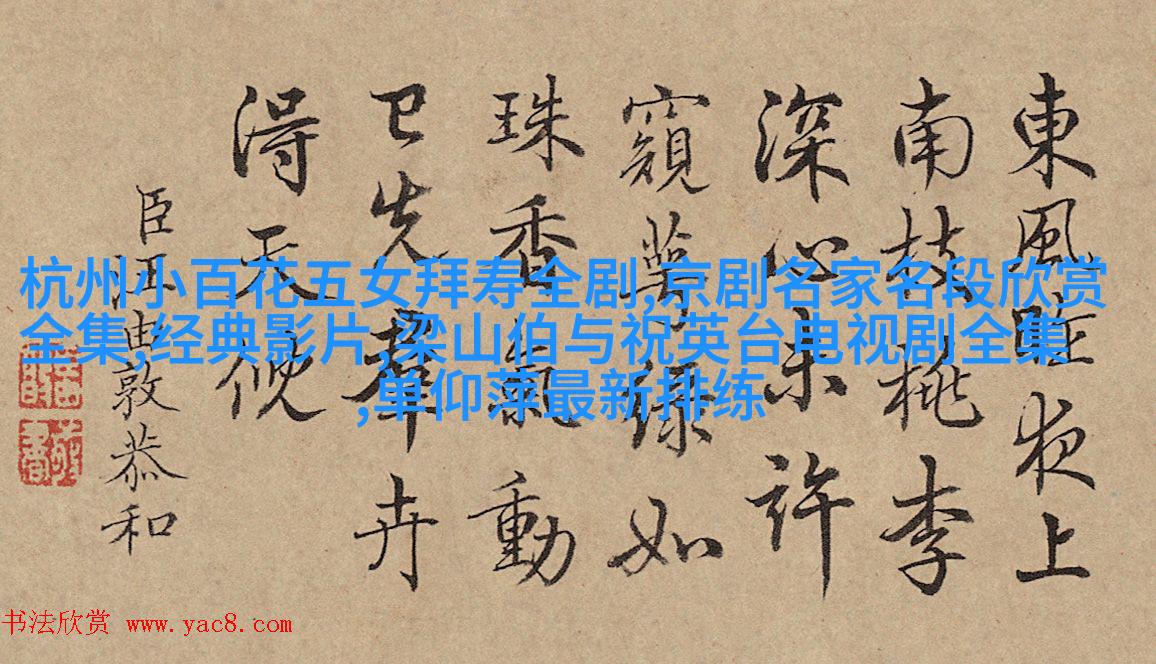 杭州小百花五女拜寿全剧,京剧名家名段欣赏
全集,经典影片,梁山伯与祝英台电视剧全集
,单仰萍最新排练
東風昨夜上
南枝桃李
深心未許
窺萼綠如
珠香氣動
已先羣卉
得天倪
臣汪由敦恭和
书法欣赏 www.yac8.com